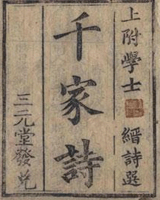 上附學士
縉詩選
千家詩
三元堂發兌